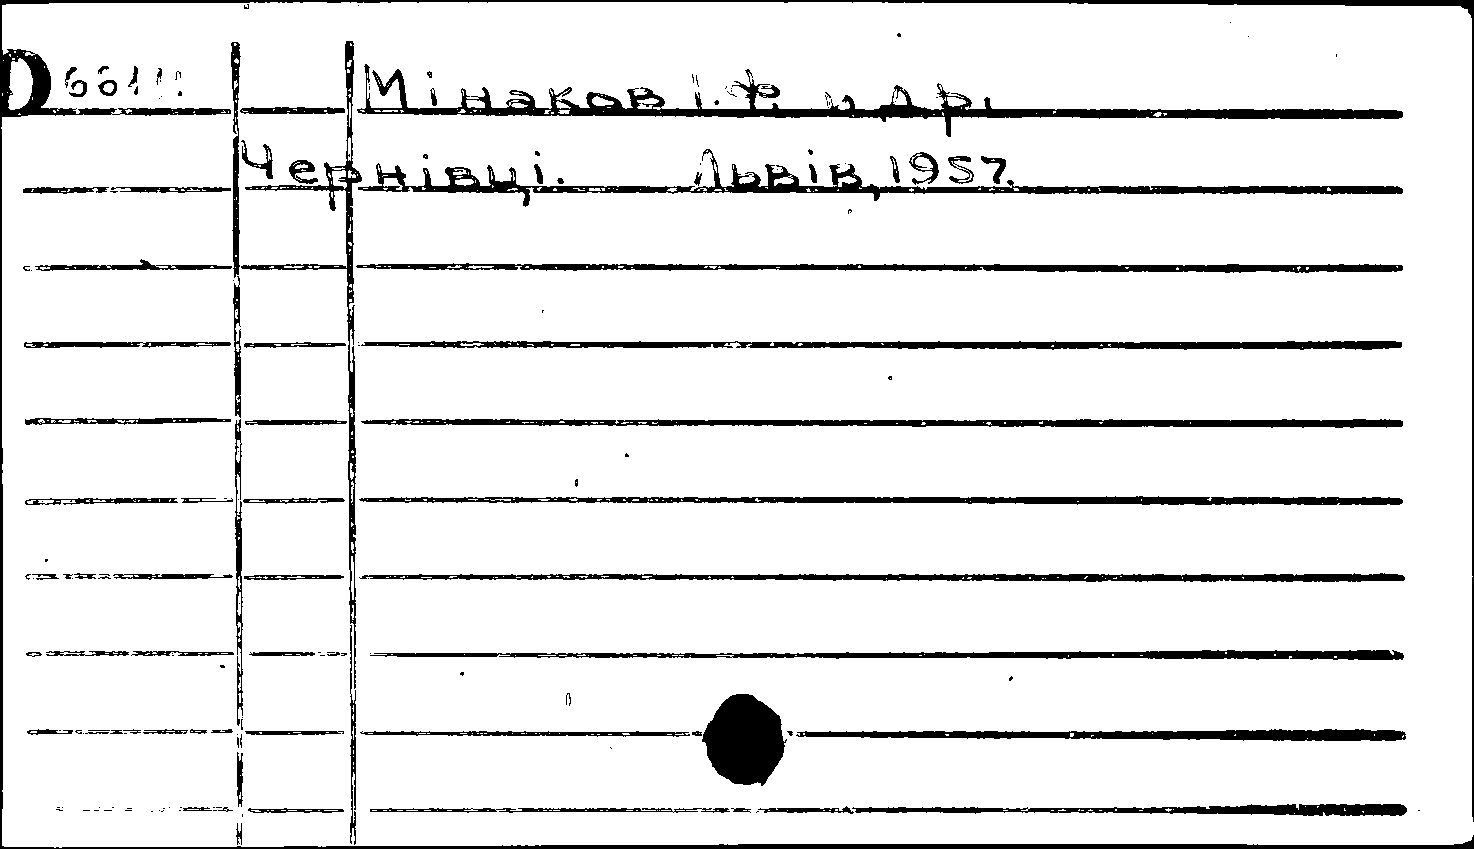 D 66111 Мінаков І.Ф. и др.
Чернівці. Львів, 1957.